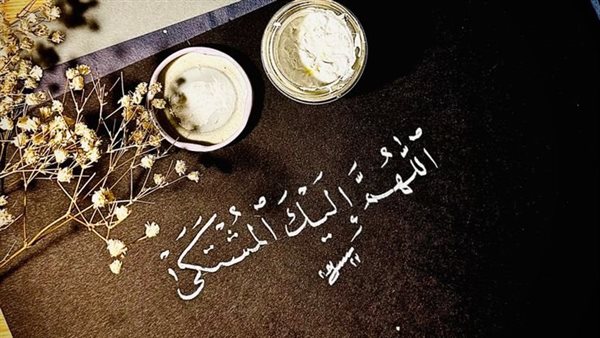 اَللّٰهُمَّ إِلَيْكَ الْمُشْتَكَىٰ